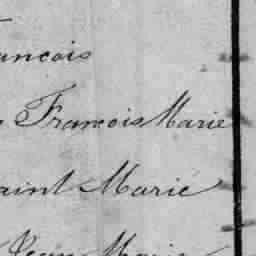 ancois
François Marie
aint Marie
Jean Marie